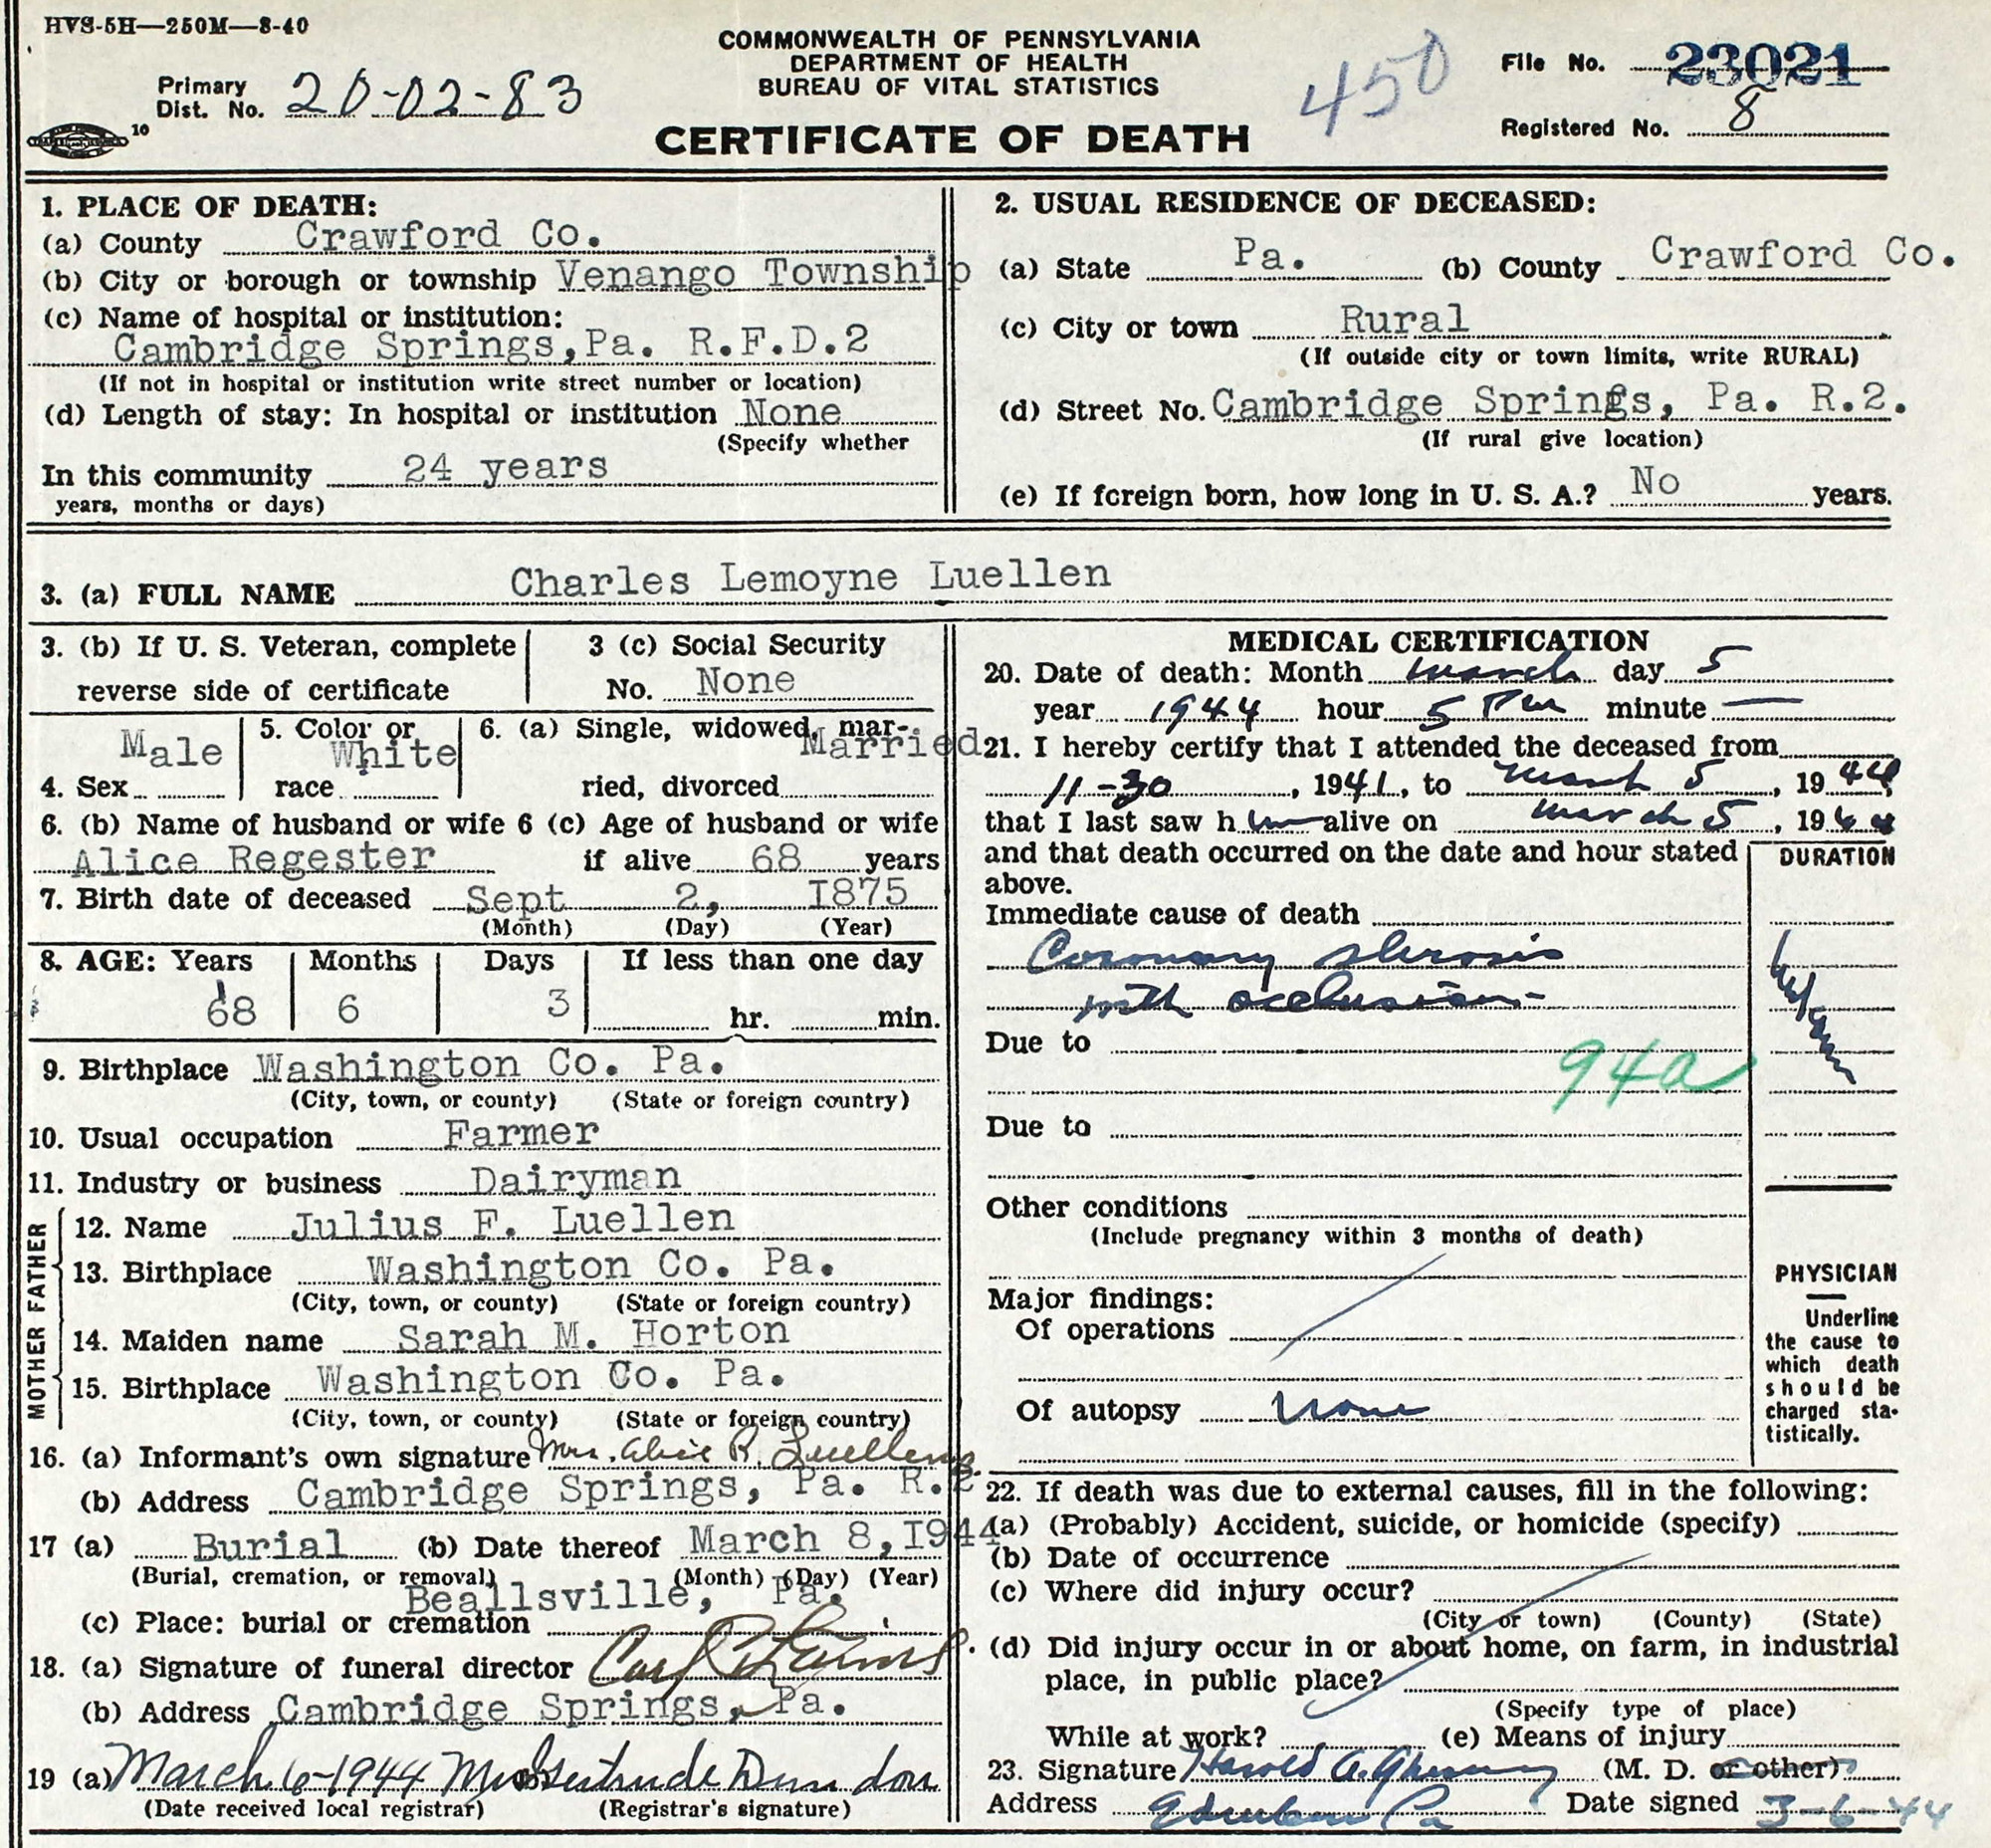 HVS-5H—250M—8-40
COMMONWEALTH OF PENNSYLVANIA
DEPARTMENT OF HEALTH
BUREAU OF VITAL STATISTICS
CERTIFICATE OF DEATH
Primary
Dist. No. 20-02-83
10
450
File No. 23021
Registered No. 8
1. PLACE OF DEATH:
(a) County Crawford Co.
(b) City or borough or township Venango Township
(c) Name of hospital or institution:
Cambridge Springs,Pa. R.F.D.2
(If not in hospital or institution write street number or location)
(d) Length of stay: In hospital or institution None
(Specify whether
In this community 24 years
years, months or days)
2. USUAL RESIDENCE OF DECEASED:
(a) State Pa. (b) County Crawford Co.
(c) City or town Rural
(If outside city or town limits, write RURAL)
(d) Street No. Cambridge Springs, Pa. R.2.
(If rural give location)
(e) If foreign born, how long in U. S. A.? No years.
3. (a) FULL NAME Charles Lemoyne Luellen
3. (b) If U. S. Veteran, complete
reverse side of certificate
3 (c) Social Security
No. None
4. Sex Male
5. Color or
race White
6. (a) Single, widowed, mar-
ried, divorced Married
6. (b) Name of husband or wife
Alice Regester
6 (c) Age of husband or wife
if alive 68 years
7. Birth date of deceased Sept 2, I875
(Month) (Day) (Year)
8. AGE: Years Months Days If less than one day
68 6 3 hr. min.
9. Birthplace Washington Co. Pa.
(City, town, or county) (State or foreign country)
10. Usual occupation Farmer
11. Industry or business Dairyman
FATHER
12. Name Julius F. Luellen
13. Birthplace Washington Co. Pa.
(City, town, or county) (State or foreign country)
MOTHER
14. Maiden name Sarah M. Horton
15. Birthplace Washington Co. Pa.
(City, town, or county) (State or foreign country)
16. (a) Informant's own signature Mrs. Alice R. Luellen
(b) Address Cambridge Springs, Pa. R.2
17 (a) Burial (b) Date thereof March 8,I944
(Burial, cremation, or removal) (Month) (Day) (Year)
(c) Place: burial or cremation Beallsville, Pa.
18. (a) Signature of funeral director Carl
(b) Address Cambridge Springs, Pa.
19 (a) March 6-1944 Mrs Gertrude Dundon
(Date received local registrar) (Registrar's signature)
MEDICAL CERTIFICATION
20. Date of death: Month March day 5
year 1944 hour 5 PM minute —
21. I hereby certify that I attended the deceased from
11-30, 1941, to March 5, 1944
that I last saw him alive on March 5, 1944
and that death occurred on the date and hour stated
above.
DURATION
Immediate cause of death
Coronary sclerosis
with occlusion
Due to
94a
Due to
Other conditions
(Include pregnancy within 3 months of death)
Major findings:
Of operations
Of autopsy None
PHYSICIAN
Underline
the cause to
which death
should be
charged sta-
tistically.
22. If death was due to external causes, fill in the following:
(a) (Probably) Accident, suicide, or homicide (specify)
(b) Date of occurrence
(c) Where did injury occur?
(City or town) (County) (State)
(d) Did injury occur in or about home, on farm, in industrial
place, in public place?
(Specify type of place)
While at work? (e) Means of injury
23. Signature Harold A. (M. D. or other)
Address Edinboro Pa Date signed 3-6-44